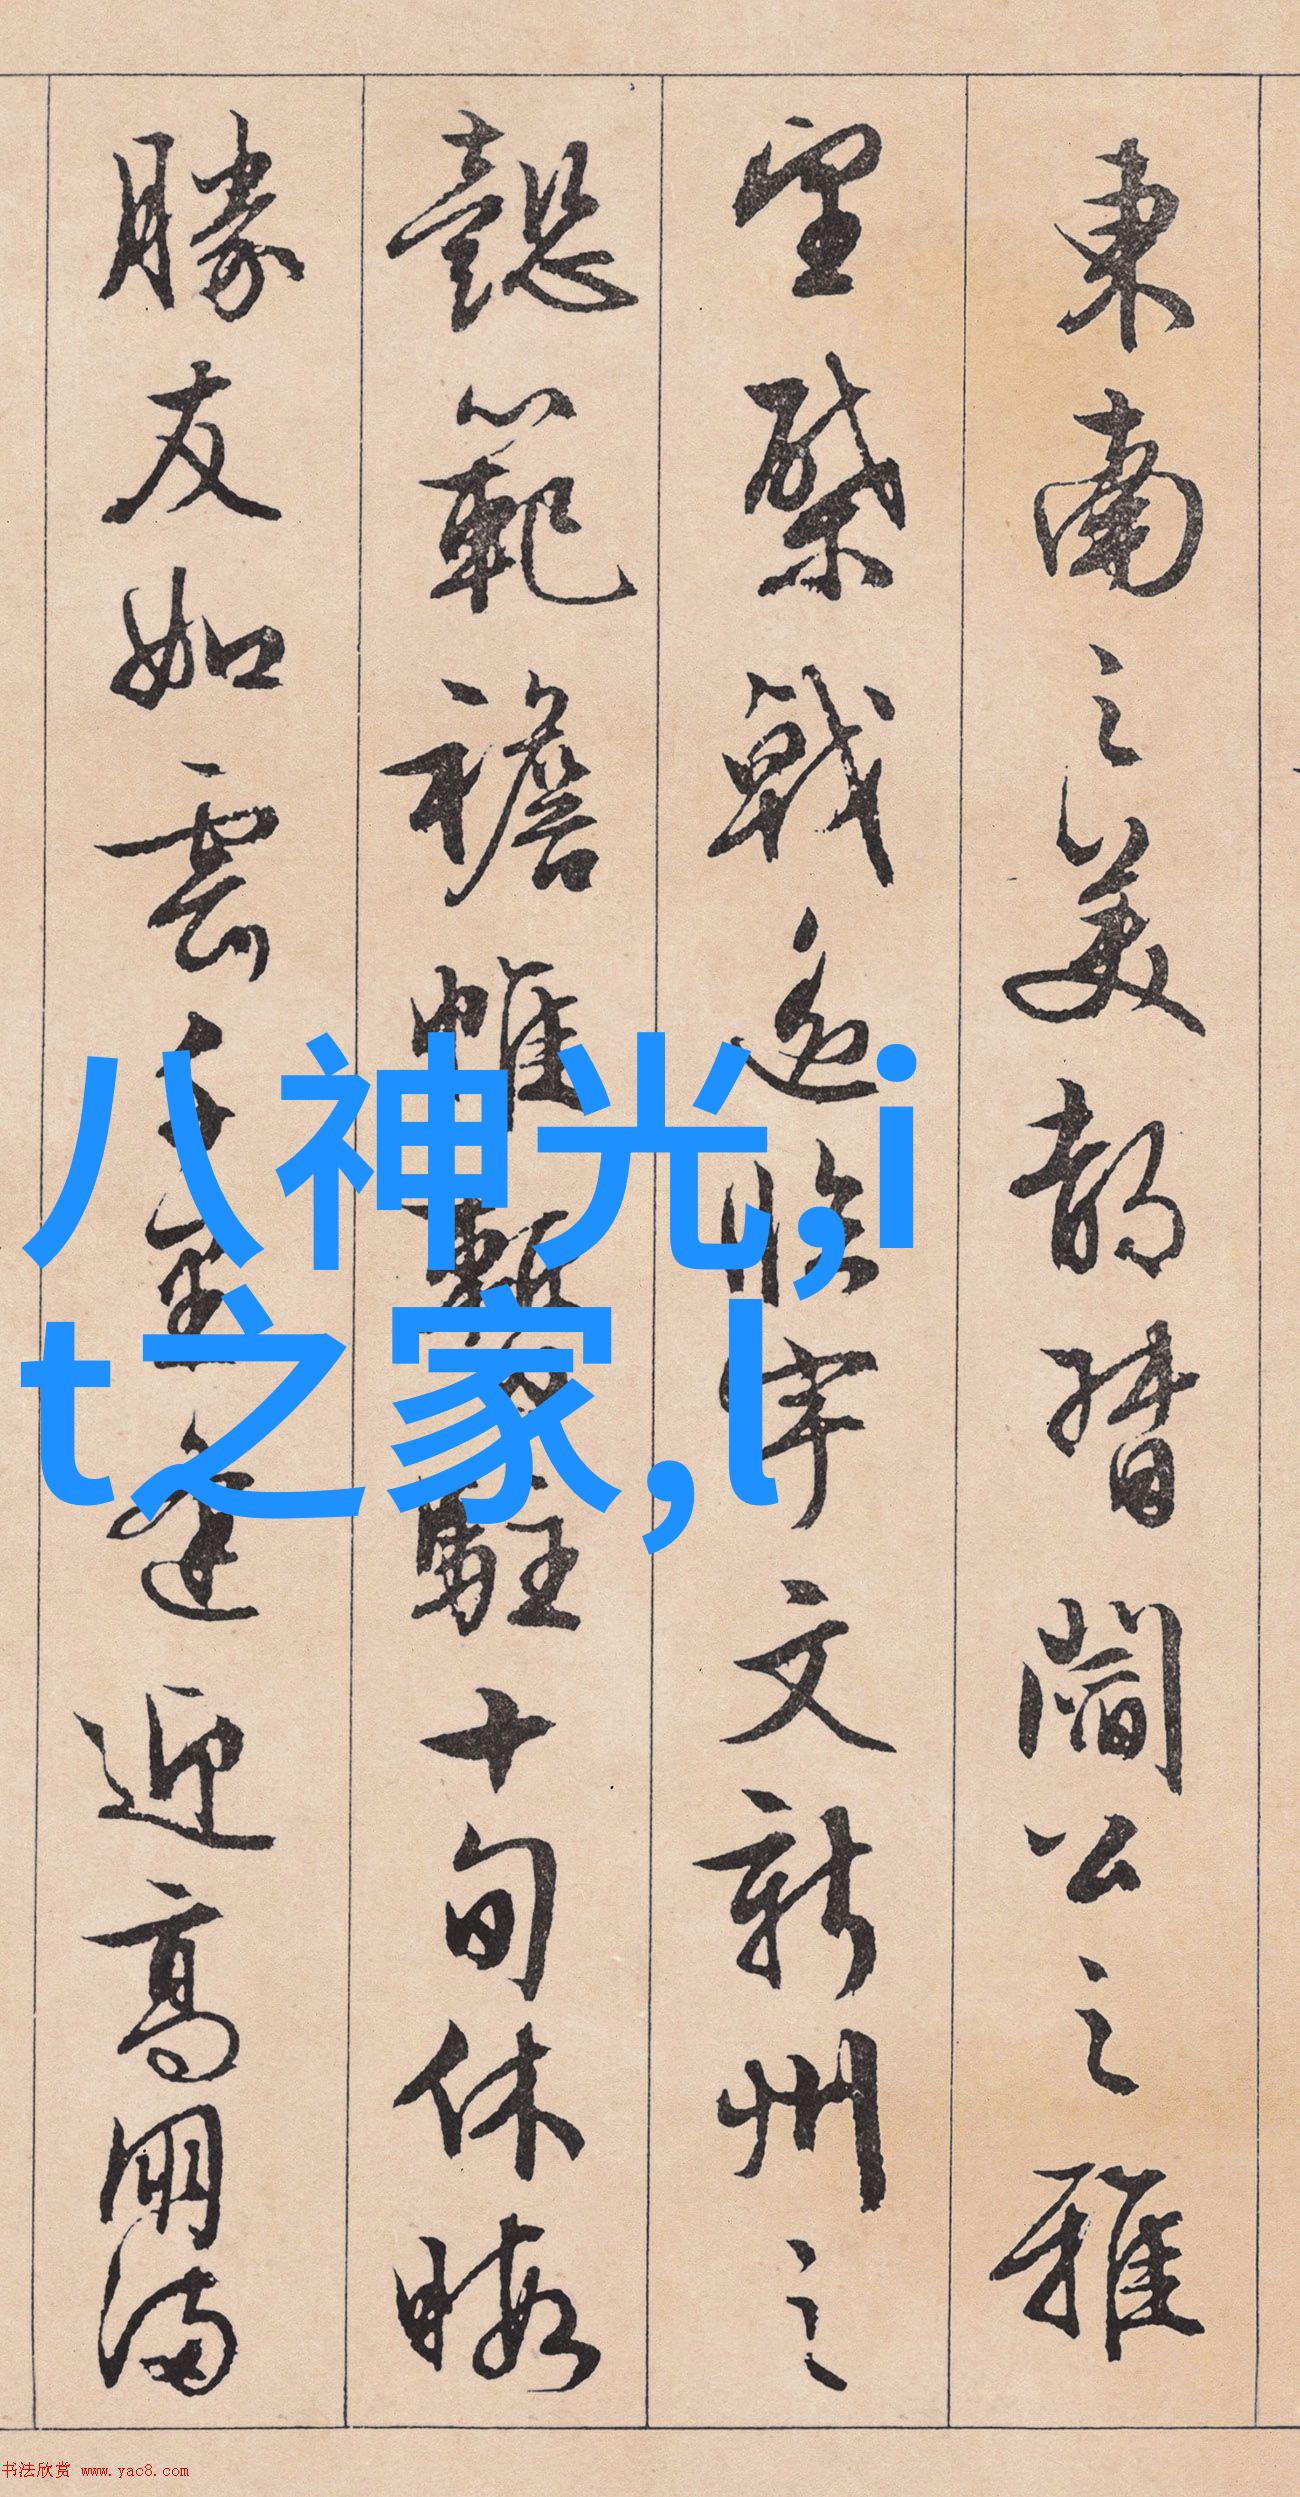 東南之美都督閻公之雅
望棨戟遥臨宇文新州之
懿範襜帷暫駐十旬休暇
勝友如雲千里逢迎高朋滿
八神光,i
t之家,l
书法欣赏 www.yac8.com